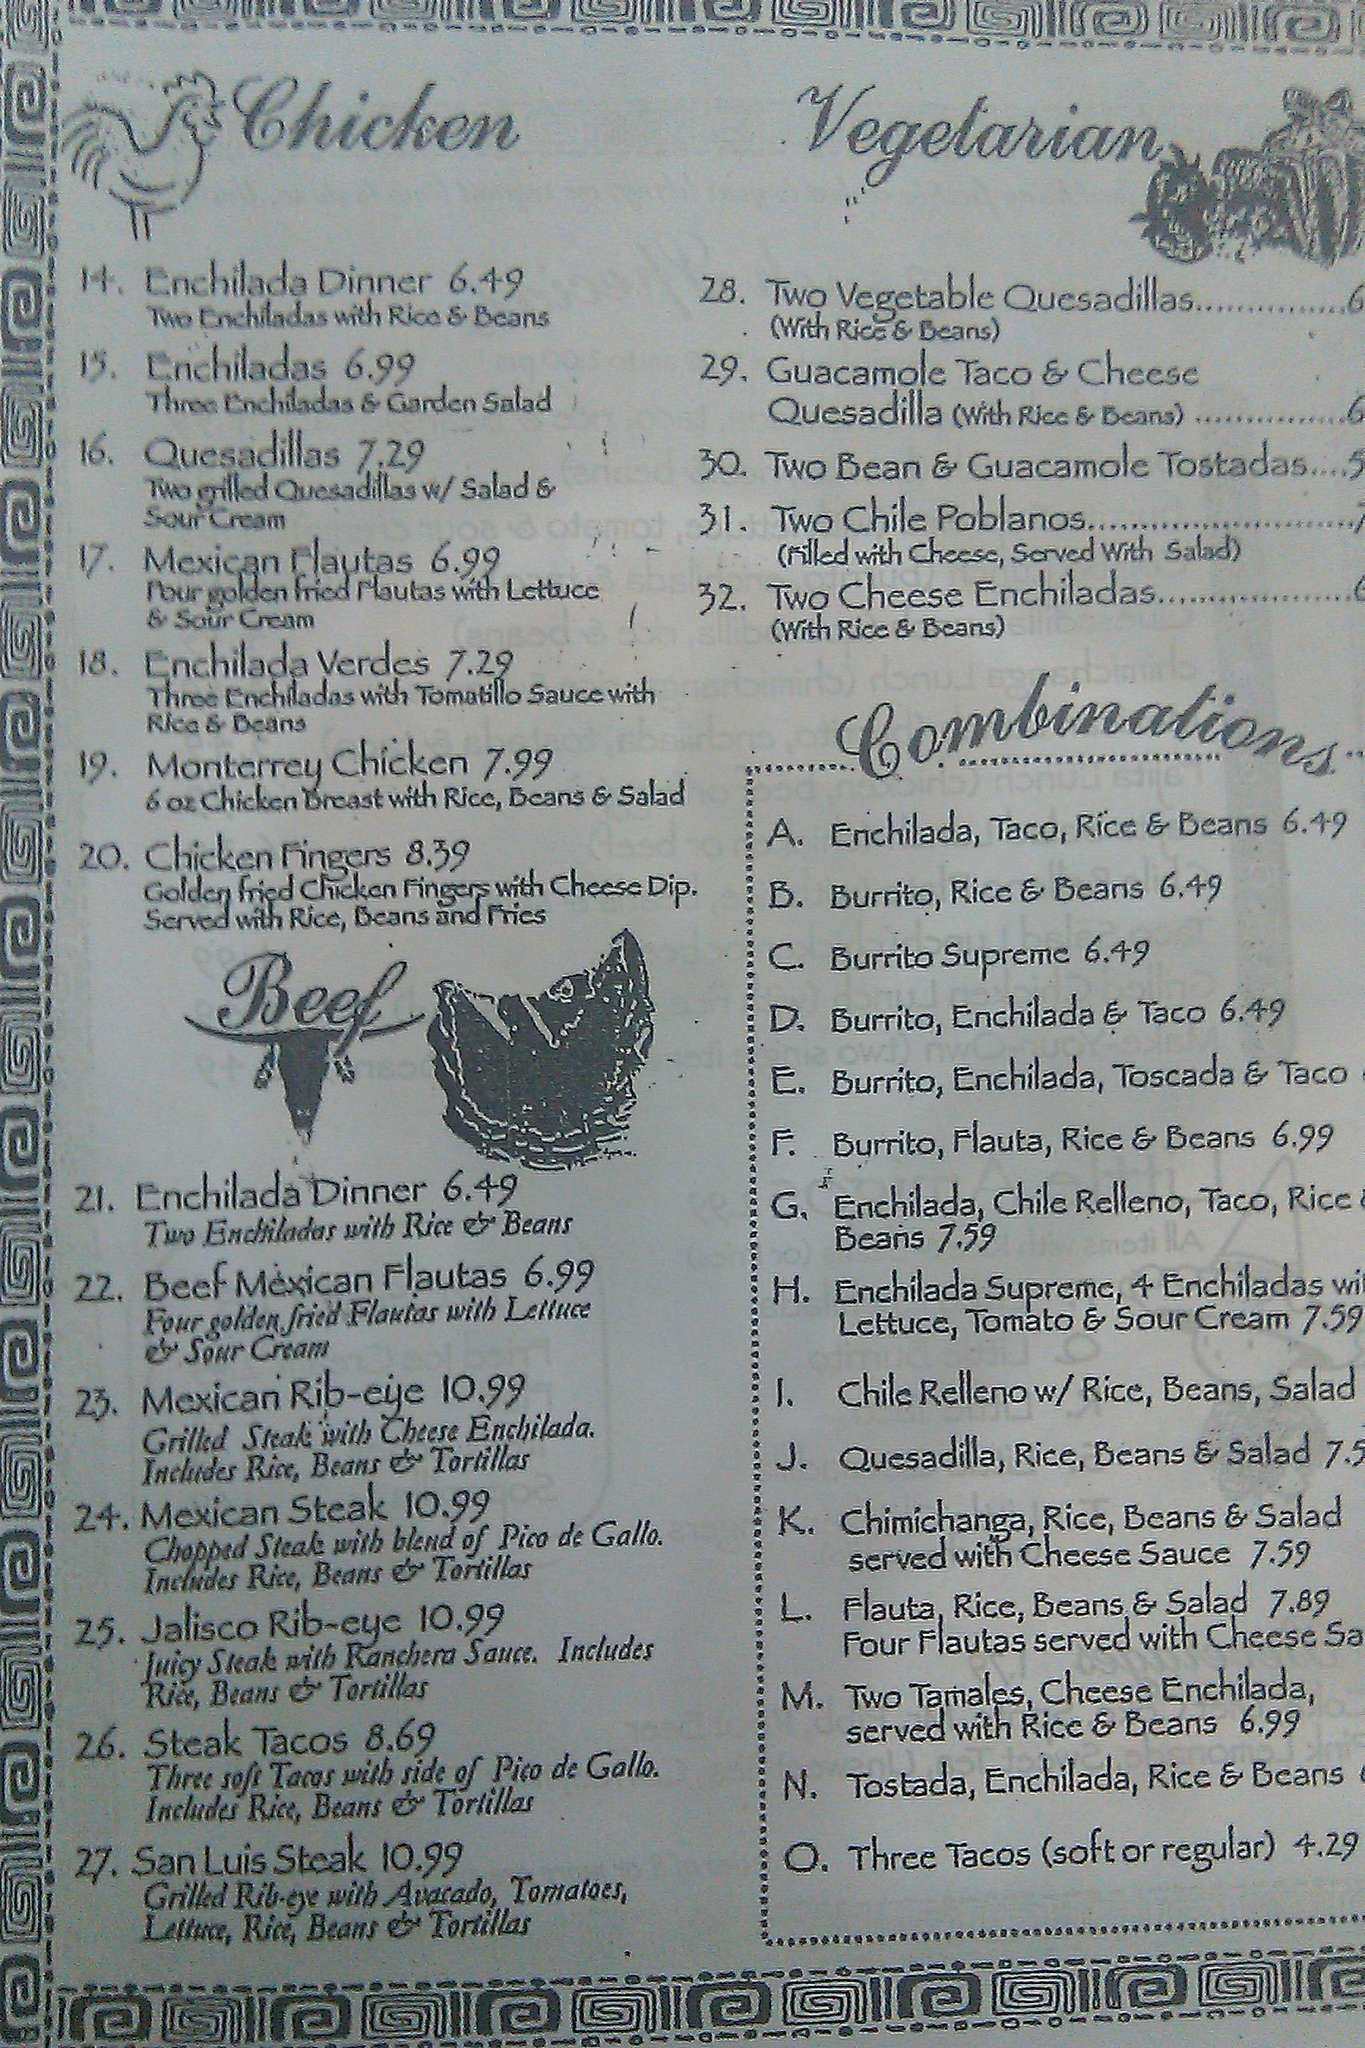 Chicken
14. Enchilada Dinner 6.49
Two Enchiladas with Rice & Beans
15. Enchiladas 6.99
Three Enchiladas & Garden Salad
16. Quesadillas 7.29
Two grilled Quesadillas w/ Salad &
Sour Cream
17. Mexican Flautas 6.99
Four golden fried Flautas with Lettuce
& Sour Cream
18. Enchilada Verdes 7.29
Three Enchiladas with Tomatillo Sauce with
Rice & Beans
19. Monterrey Chicken 7.99
6 oz Chicken Breast with Rice, Beans & Salad
20. Chicken Fingers 8.39
Golden fried Chicken Fingers with Cheese Dip.
Served with Rice, Beans and Fries
Beef
21. Enchilada Dinner 6.49
Two Enchiladas with Rice & Beans
22. Beef Mexican Flautas 6.99
Four golden fried Flautas with Lettuce
& Sour Cream
23. Mexican Rib-eye 10.99
Grilled Steak with Cheese Enchilada.
Includes Rice, Beans & Tortillas
24. Mexican Steak 10.99
Chopped Steak with blend of Pico de Gallo.
Includes Rice, Beans & Tortillas
25. Jalisco Rib-eye 10.99
Juicy Steak with Ranchera Sauce. Includes
Rice, Beans & Tortillas
26. Steak Tacos 8.69
Three soft Tacos with side of Pico de Gallo.
Includes Rice, Beans & Tortillas
27. San Luis Steak 10.99
Grilled Rib-eye with Avacado, Tomatoes,
Lettuce, Rice, Beans & Tortillas
Vegetarian
28. Two Vegetable Quesadillas..............6
(With Rice & Beans)
29. Guacamole Taco & Cheese
Quesadilla (With Rice & Beans) ................6
30. Two Bean & Guacamole Tostadas....5
31. Two Chile Poblanos..........................
(Filled with Cheese, Served With Salad)
32. Two Cheese Enchiladas....................6
(With Rice & Beans)
Combinations
A. Enchilada, Taco, Rice & Beans 6.49
B. Burrito, Rice & Beans 6.49
C. Burrito Supreme 6.49
D. Burrito, Enchilada & Taco 6.49
E. Burrito, Enchilada, Toscada & Taco
F. Burrito, Flauta, Rice & Beans 6.99
G. Enchilada, Chile Relleno, Taco, Rice &
Beans 7.59
H. Enchilada Supreme, 4 Enchiladas wi
Lettuce, Tomato & Sour Cream 7.59
I. Chile Relleno w/ Rice, Beans, Salad
J. Quesadilla, Rice, Beans & Salad 7.5
K. Chimichanga, Rice, Beans & Salad
served with Cheese Sauce 7.59
L. Flauta, Rice, Beans & Salad 7.89
Four Flautas served with Cheese Sa
M. Two Tamales, Cheese Enchilada,
served with Rice & Beans 6.99
N. Tostada, Enchilada, Rice & Beans
O. Three Tacos (soft or regular) 4.29